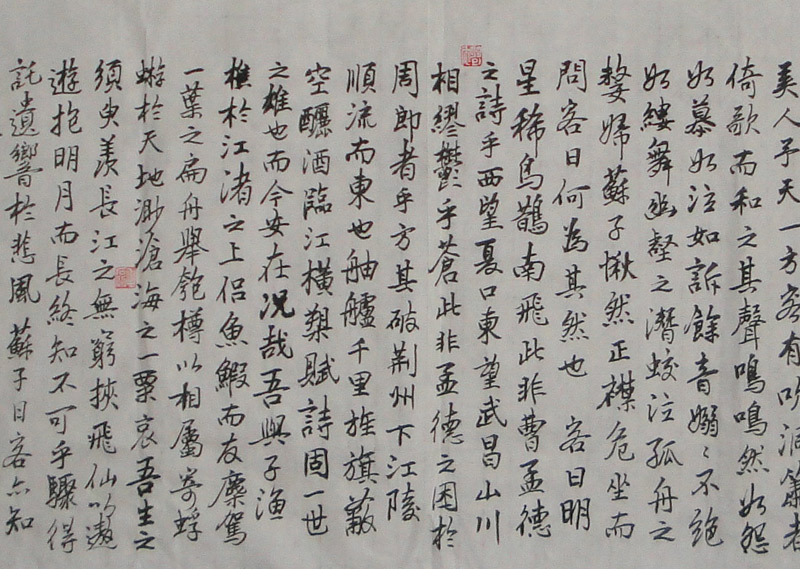 美人子天一方客有吹洞簫者
倚歌而和之其聲鳴鳴然如怨
如慕如泣如訴餘音嫋〻不絕
如縷舞幽壑之潛蛟泣孤舟之
嫠婦蘇子愀然正襟危坐而
問客曰何為其然也 客曰明
星稀烏鵲南飛此非曹孟德
之詩乎西望夏口東望武昌山川
相繆鬱乎蒼此非孟德之困於
周郎者乎方其破荊州下江陵
順流而東也舳艫千里旌旗蔽
空釃酒臨江橫槊賦詩固一世
之雄也而今安在況哉吾與子漁
樵於江渚之上侶魚鰕而友麋駕
一葉之扁舟舉匏樽以相屬寄蜉
蝣於天地渺滄海之一粟哀吾生之
須臾羨長江之無窮挾飛仙以遨
遊抱明月而長終知不可乎驟得
託遺響於悲風 蘇子曰客亦知